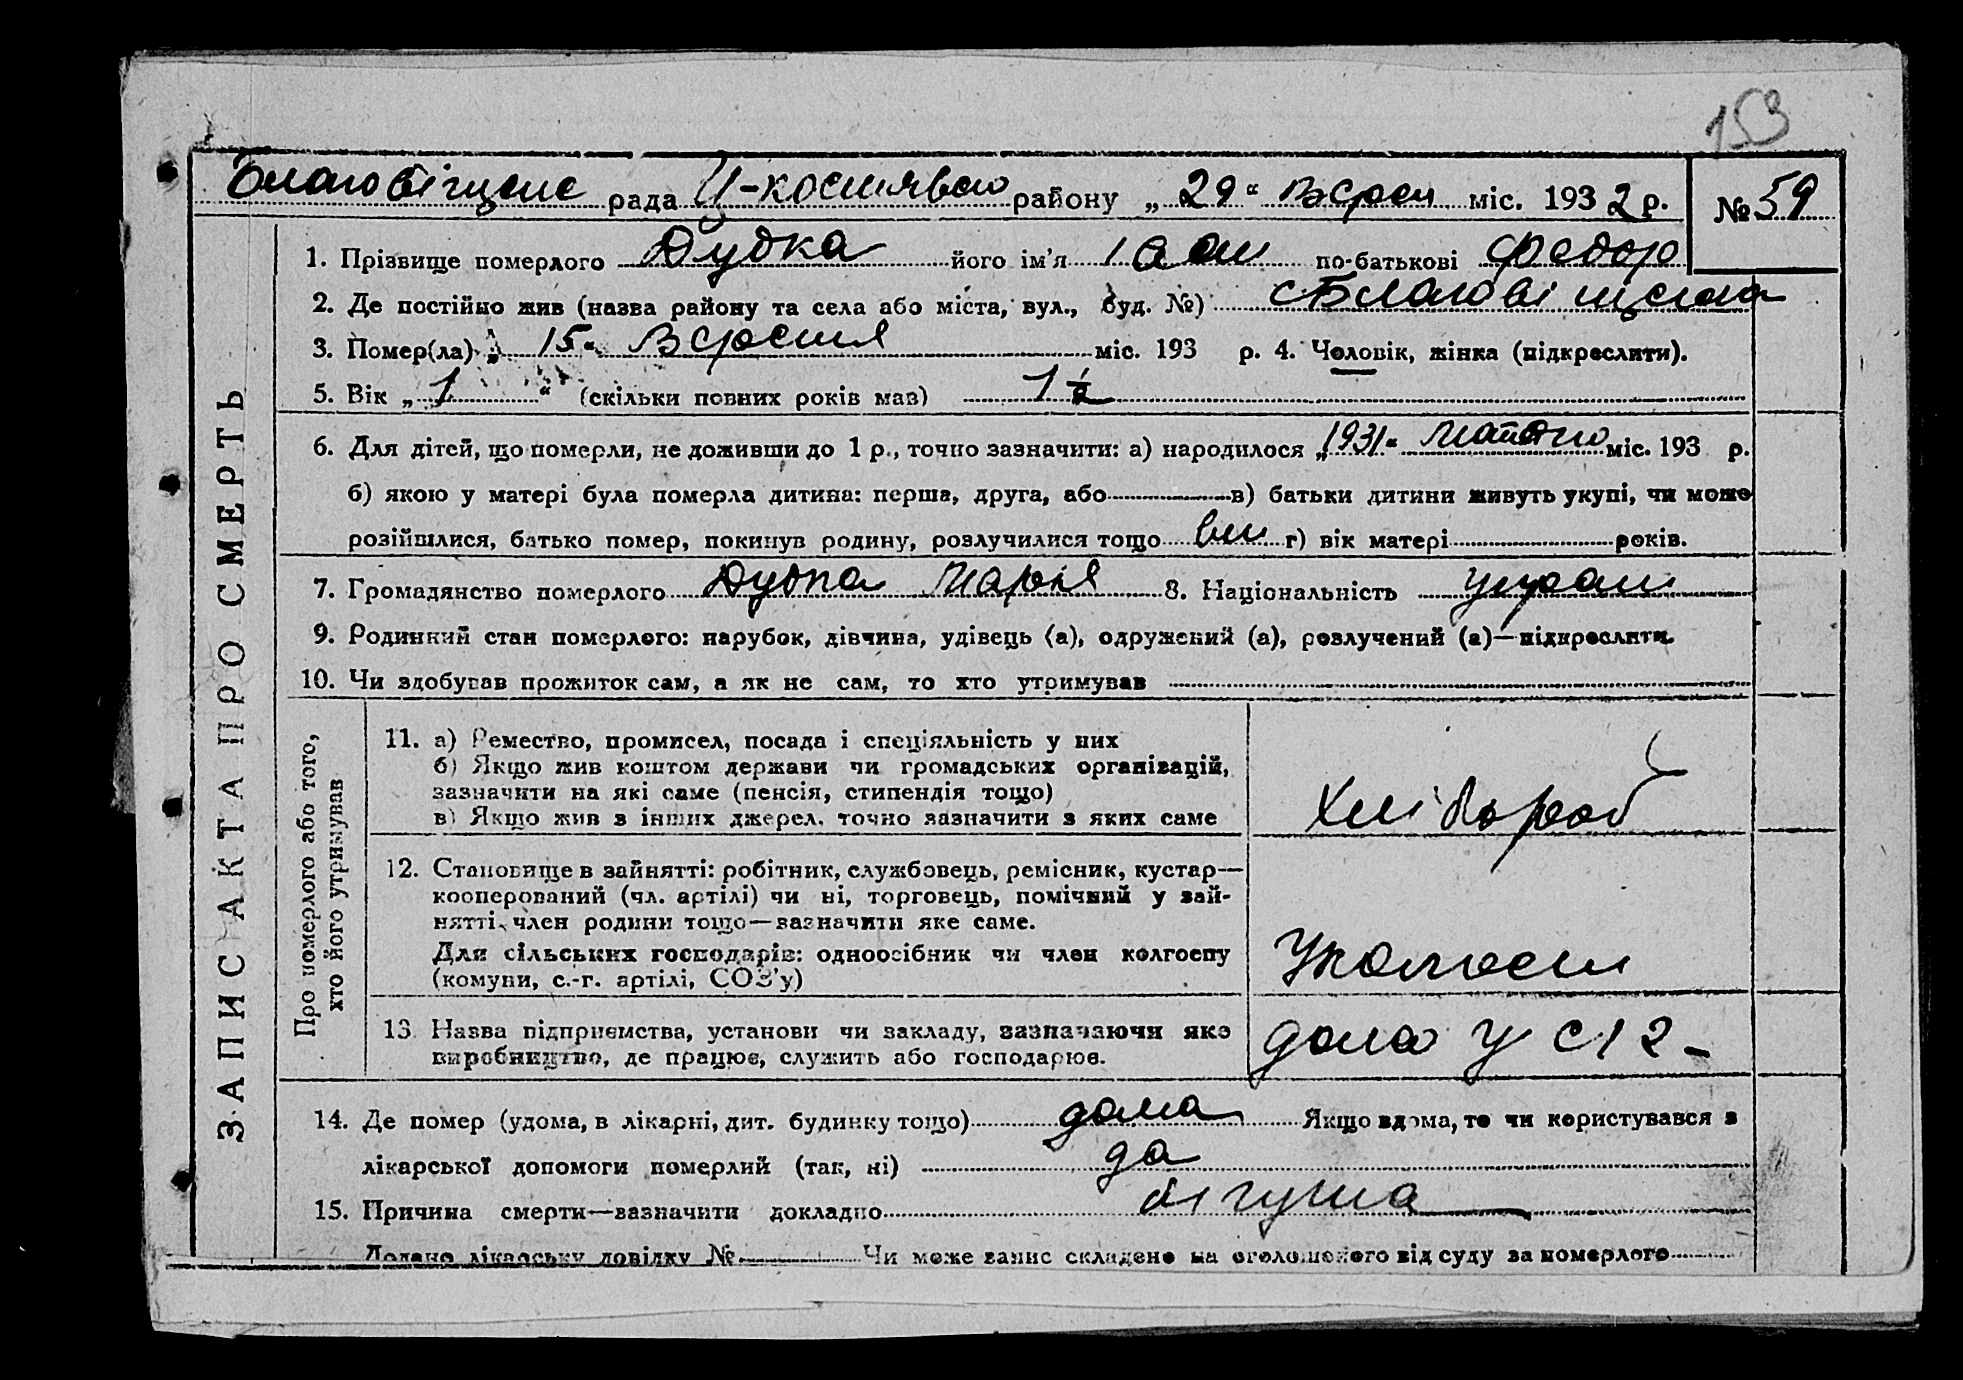 153
Благовіщене рада район „ 29 “ Вереси міс. 1932 р. № 59
1. Прізвище померлого Дудка його ім'я Іван по-батькові Федор
2. Де постійно жив (назва району та села або міста, вул., буд. №) с Благовіщена
3. Помер(ла) „ 15 “ Вересня міс. 193 р. 4. Чоловік, жінка (підкреслити).
5. Вік „ 1 “ (скільки повних років мав) 1 ½
6. Для дітей, що померли, не доживши до 1 р., точно зазначити: а) народилося „ 1931 “ міс. 193 р.
б) якою у матері була померла дитина: перша, друга, або в) батьки дитини живуть укупі, чи може
розійшлися, батько помер, покинув родину, розлучилися тощо г) вік матері років.
7. Громадянство померлого Дудка Марія 8. Національність украи
9. Родинний стан померлого: парубок, дівчина, удівець (а), одружений (а), розлучений (а)—підкреслити.
10. Чи здобував прожиток сам, а як не сам, то хто утримував
ЗАПИС АКТА ПРО СМЕРТЬ
Про померлого або того,
хто його утримував
11. а) Ремество, промисел, посада і спеціяльність у них
б) Якщо жив коштом держави чи громадських організацій,
зазначити на які саме (пенсія, стипендія тощо)
в) Якщо жив з інших джерел, точно зазначити з яких саме
Хлібороб
12. Становище в зайнятті: робітник, службовець, ремісник, кустар—
кооперований (чл. артілі) чи ні, торговець, помічний у зай-
нятті, член родини тощо—зазначити яке саме.
Для сільських господарів: одноосібник чи член колгоспу
(комуни, с.-г. артілі, СОЗ'у)
Уколгоспи
13. Назва підприємства, установи чи закладу, зазначаючи яке
виробництво, де працює, служить або господарює.
дома у
14. Де помер (удома, в лікарні, дит. будинку тощо) дома Якщо вдома, то чи користувався з
лікарської допомоги померлий (так, ні) да
15. Причина смерти—зазначити докладно
Додано лікарську довідку № Чи може запис складено на оголошеного від суду за померлого